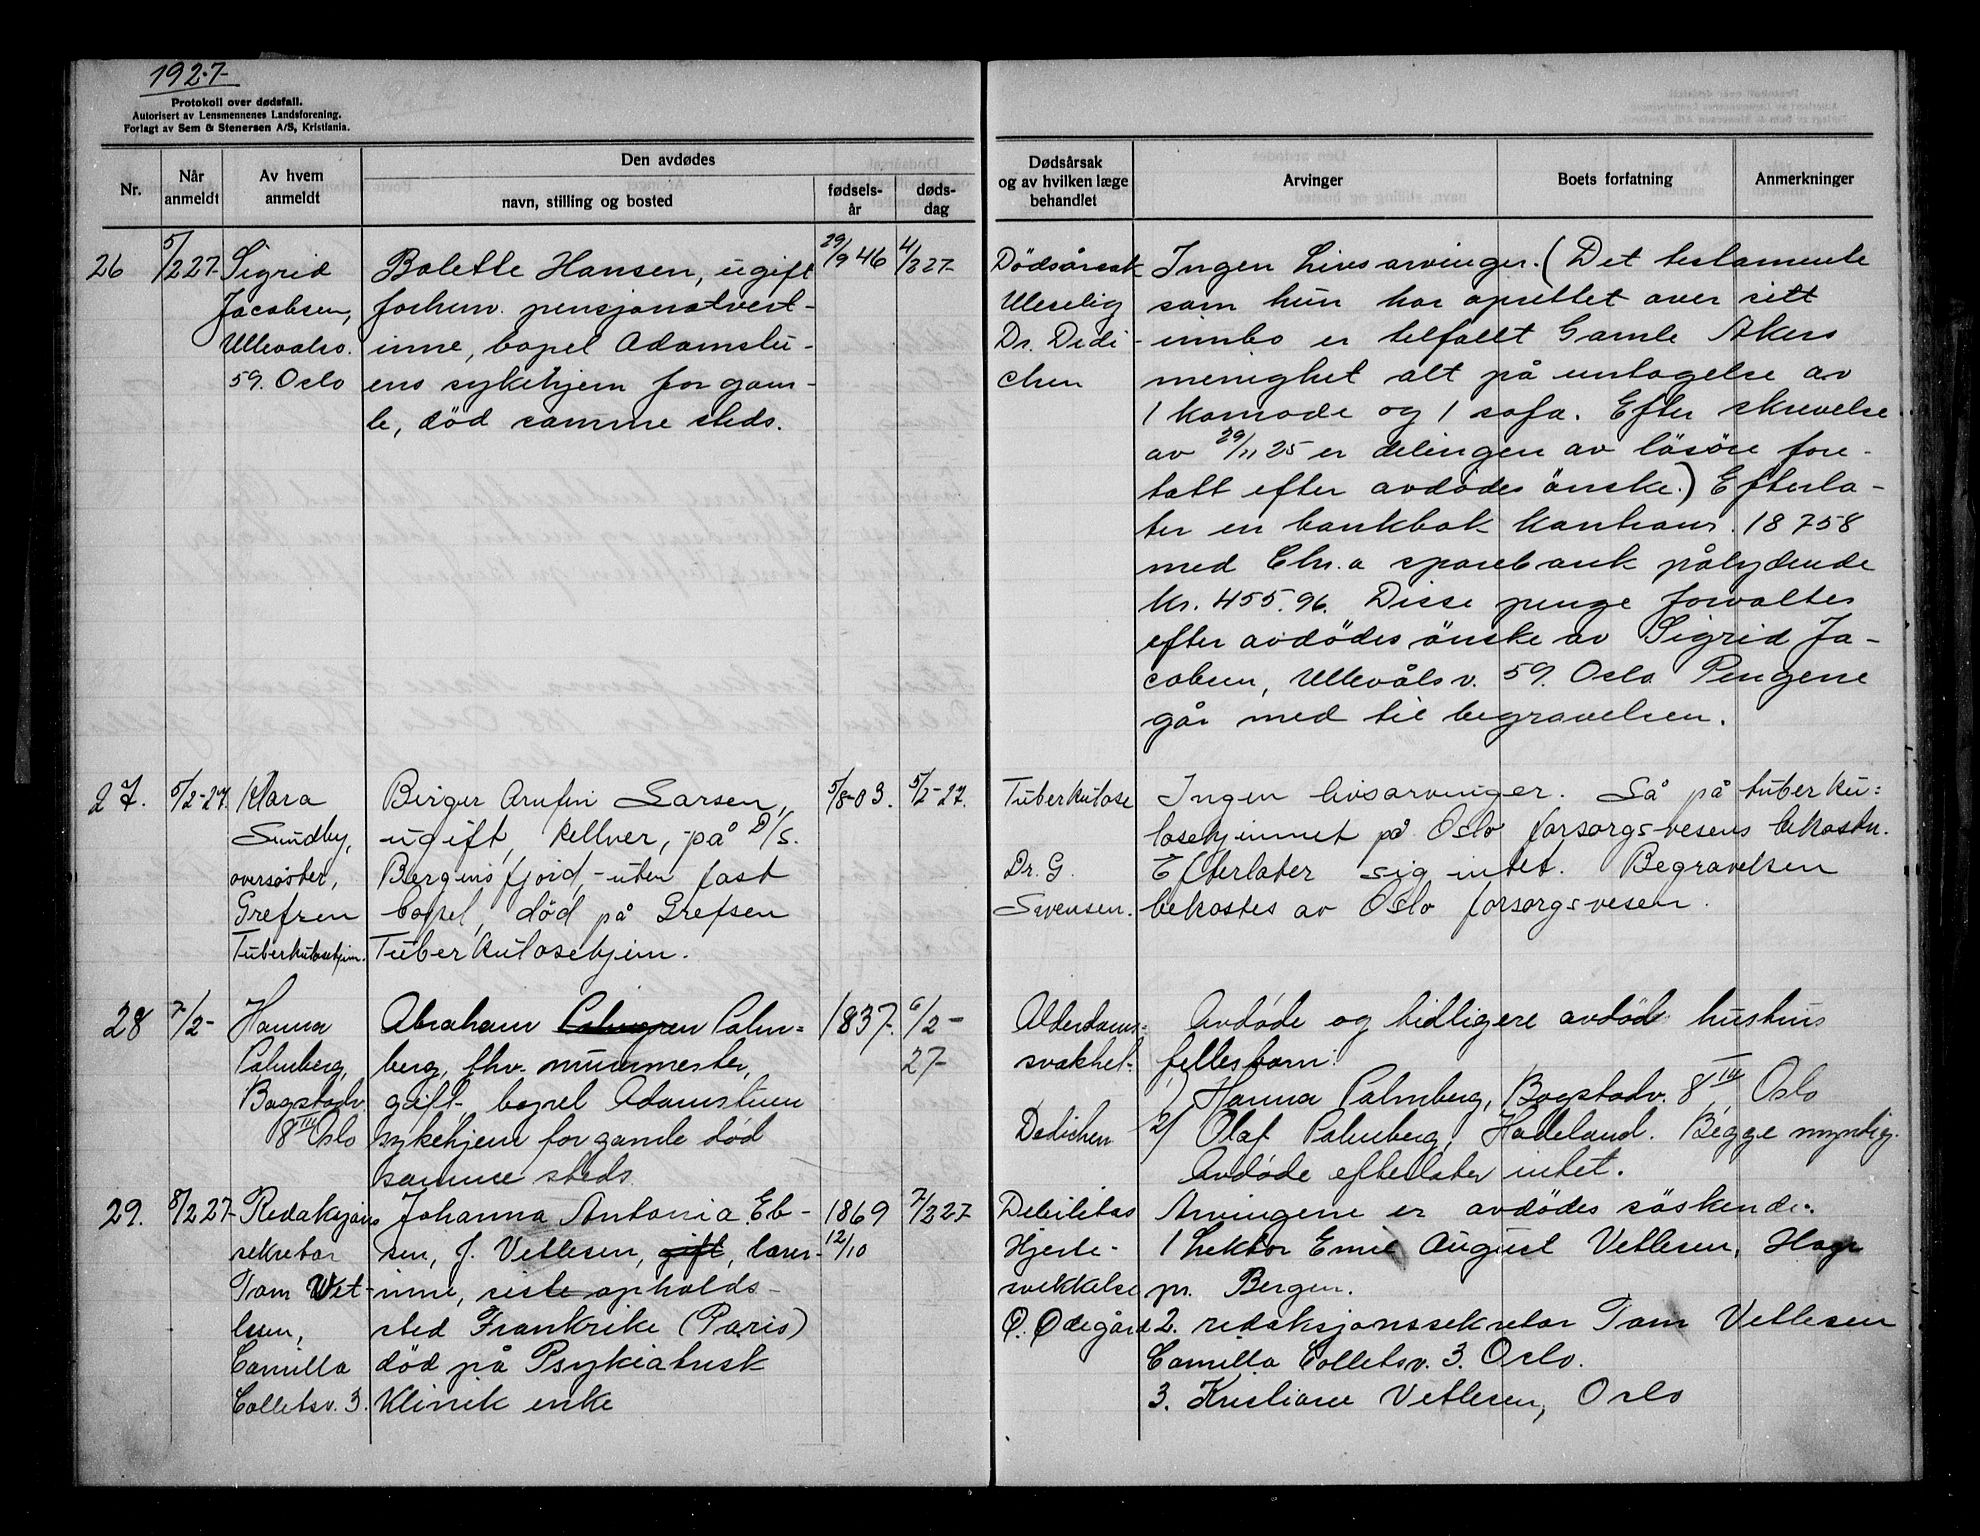 1927-
Protokoll over dødsfall.
Autorisert av Lensmennenes Landsforening.
Forlagt av Sem & Stenersen A/S, Kristiania.
Nr.
Når anmeldt
Av hvem anmeldt
Den avdødes
navn, stilling og bosted
fødsels-år
døds-dag
Dødsårsak og av hvilken læge behandlet
Arvinger
Boets forfatning
Anmerkninger
26
5/2 27-
Sigrid
Jacobsen,
Ullevålsv.
59. Oslo
Bolette Hansen, ugift
forhenv. pensjonatvert-
inne, bopel Adamstu-
ens sykehjem for gam-
le, død samme steds.
29/9 46
4/2 27-
Dødsårsak
Uleselig
Dr. Dedi-
chen
Ingen Livsarvinger. (Det testamente
som hun har oprettet over sitt
innbo er tilfallt Gamle Akers
menighet alt på untagelse av
1 komode og 1 sofa. Efter skrivelse
av 29/11 25 er delingen av løsøre fore-
tatt efter avdødes ønske.) Efterla-
ter en bankbok kontranr. 18758
med Chr.a sparebank pålydende
kr. 455.96. Disse penge forvaltes
efter avdødes ønske av Sigrid Ja-
cobsen, Ullevålsv. 59. Oslo Pengene
går med til begravelsen.
27.
5/2-27.
Klara
Sundby,
oversøster,
Grefsen
Tuberkulosehjem.
Birger Arnfin Larsen,
ugift, kellner, -på D/S.
Bergensfjord, -uten fast
bopel, død på Grefsen
Tuberkulosehjem.
5/8-03.
5/2-27.
Tuberkulose
Dr. G.
Svensen.
Ingen livsarvinger. Lå på tuberku:
losehjemmet på Oslo forsorgsvesens bekostn.
Efterlater sig intet. Begravelsen
bekostes av Oslo forsorgsvesen.
28
7/2-
Hanna
Palmberg,
Bogstadv.
8 IV Oslo
Abraham Palm=
berg, fhv. murmester,
gift- bopel Adamstuen
sykehjem for gamle død
samme steds.
1837.
6/2-
27-
Alderdoms-
svakhet.
Dedichen
Avdøde og tidligere avdød hustrus
fellesbarn:
1/ Hanna Palmberg, Bogstadv. 8 IV Oslo
2/ Olaf Palmberg, Hadeland. Begge myndig.
Avdøde efterlater intet.
29.
8/2 27-
Redaksjons
sekretær
Tom Vet-
lesen,
Camilla
Colletsv. 3.
Johanna Antonia Eb-
sen, f. Vetlesen, gift, lærer-
inne, siste opholds-
sted Frankrike (Paris)
død på Psykiatrisk
Klinik enke
1869
12/10
7/2 27
Debilitas
Hjerte-
svekkelse
O. Ødegård
Arvingene er avdødes søskende:
1 Lektor Emil August Vetlesen, Hop
pr. Bergen.
2. redaksjonssekretær Tom Vetlesen
Camilla Colletsv. 3. Oslo.
3. Kristiane Vetlesen, Oslo